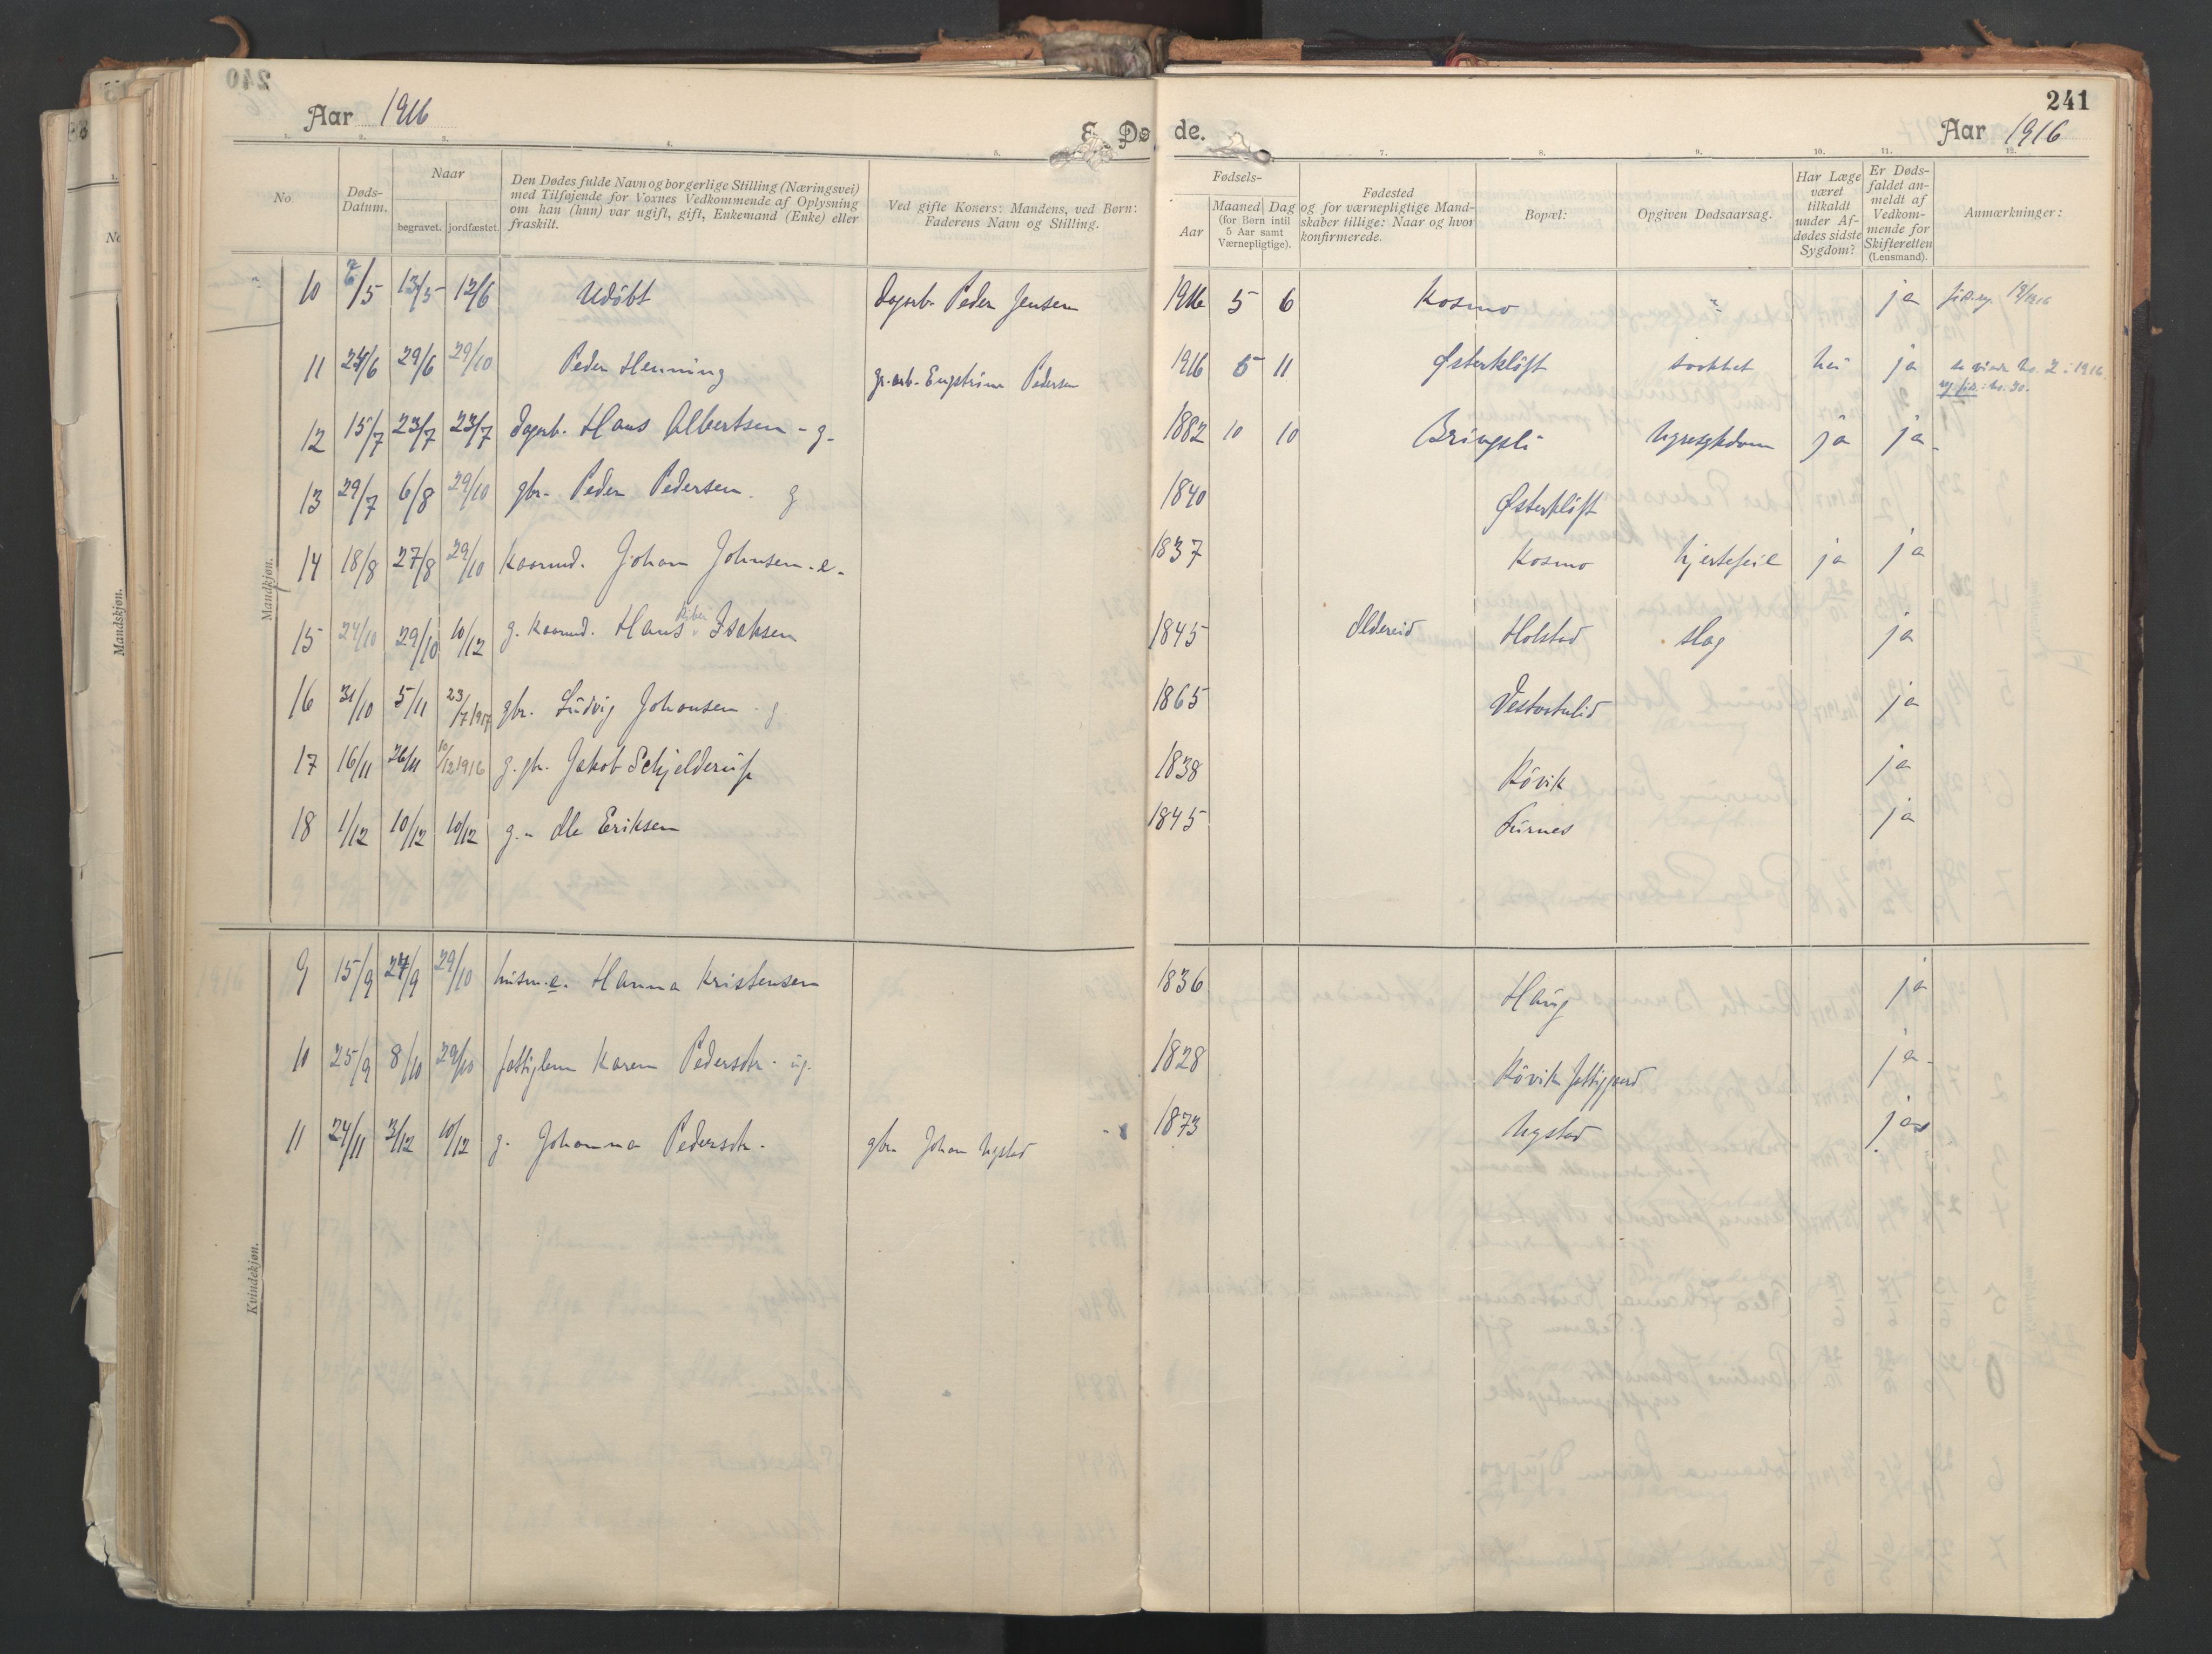 241
Aar 1916
E. Døde.
Aar 1916
1. 2. 3. 4. 5. 7. 8. 9. 10. 11. 12.
No.
Døds-Datum.
Naar
begravet. jordfæstet.
Den Dødes fulde Navn og borgerlige Stilling (Næringsvei)
med Tilføjende for Voxnes Vedkommende af Oplysning
om han (hun) var ugift, gift, Enkemand (Enke) eller
fraskilt.
Ved gifte Koners: Mandens, ved Børn:
Faderens Navn og Stilling.
Fødsels-
Aar
Maaned Dag
(for Børn intil
5 Aar samt
Værnepligtige).
Fødested
og for værnepligtige Mand-
skaber tillige: Naar og hvor
konfirmerede.
Bopæl:
Opgiven Dødsaarsag.
Har Læge
været
tilkaldt
under Af-
dødes sidste
Sygdom?
Er Døds-
faldet an-
meldt af
Vedkom-
mende for
Skifteretten
(Lensmand).
Anmærkninger:
Mandkjøn.
10 6/5 13/5 12/6 Udöbt Dagarb. Peder Jensen 1916 5 6 Kosmo " ja
11 24/6 29/6 29/10 Peder Henning Engström Pedersen 1916 5 11 Østerklöft nei ja
12 15/7 23/7 23/7 Dagarb. Hans Albertsen - g - 1882 10 10 Bringsli nyresykdom ja ja
13 29/7 6/8 29/10 gbr. Peder Pedersen. g 1840 Østerklöft
14 18/8 27/8 29/10 kaarmd. Johan Johnsen - e - 1837 Kosmo hjertefeil ja ja
15 24/10 29/10 10/12 g. kaarmd. Hans Isaksen 1845 Aldereid Holstad slag ja
16 31/10 5/11 23/7 1917 gbr. Ludvig Johansen g 1865 ja
17 16/11 26/11 10/12 1916 g. gbr. Jakob Schjelderup 1838 Kövik ja
18 1/12 10/12 10/12 g. - Ole Eriksen 1845 Furnes ja
Kvindekjøn.
9 15/9 24/9 29/10 husm. e. Hanna Kristensen 1836 Haug ja
10 25/9 8/10 29/10 fattiglem Karen Pedersdtr. ug. 1828 Kövik fattiggaard ja
11 24/11 3/12 10/12 g. Johanna Pedersdtr. gbr. Johan Nystad 1873 Nystad ja